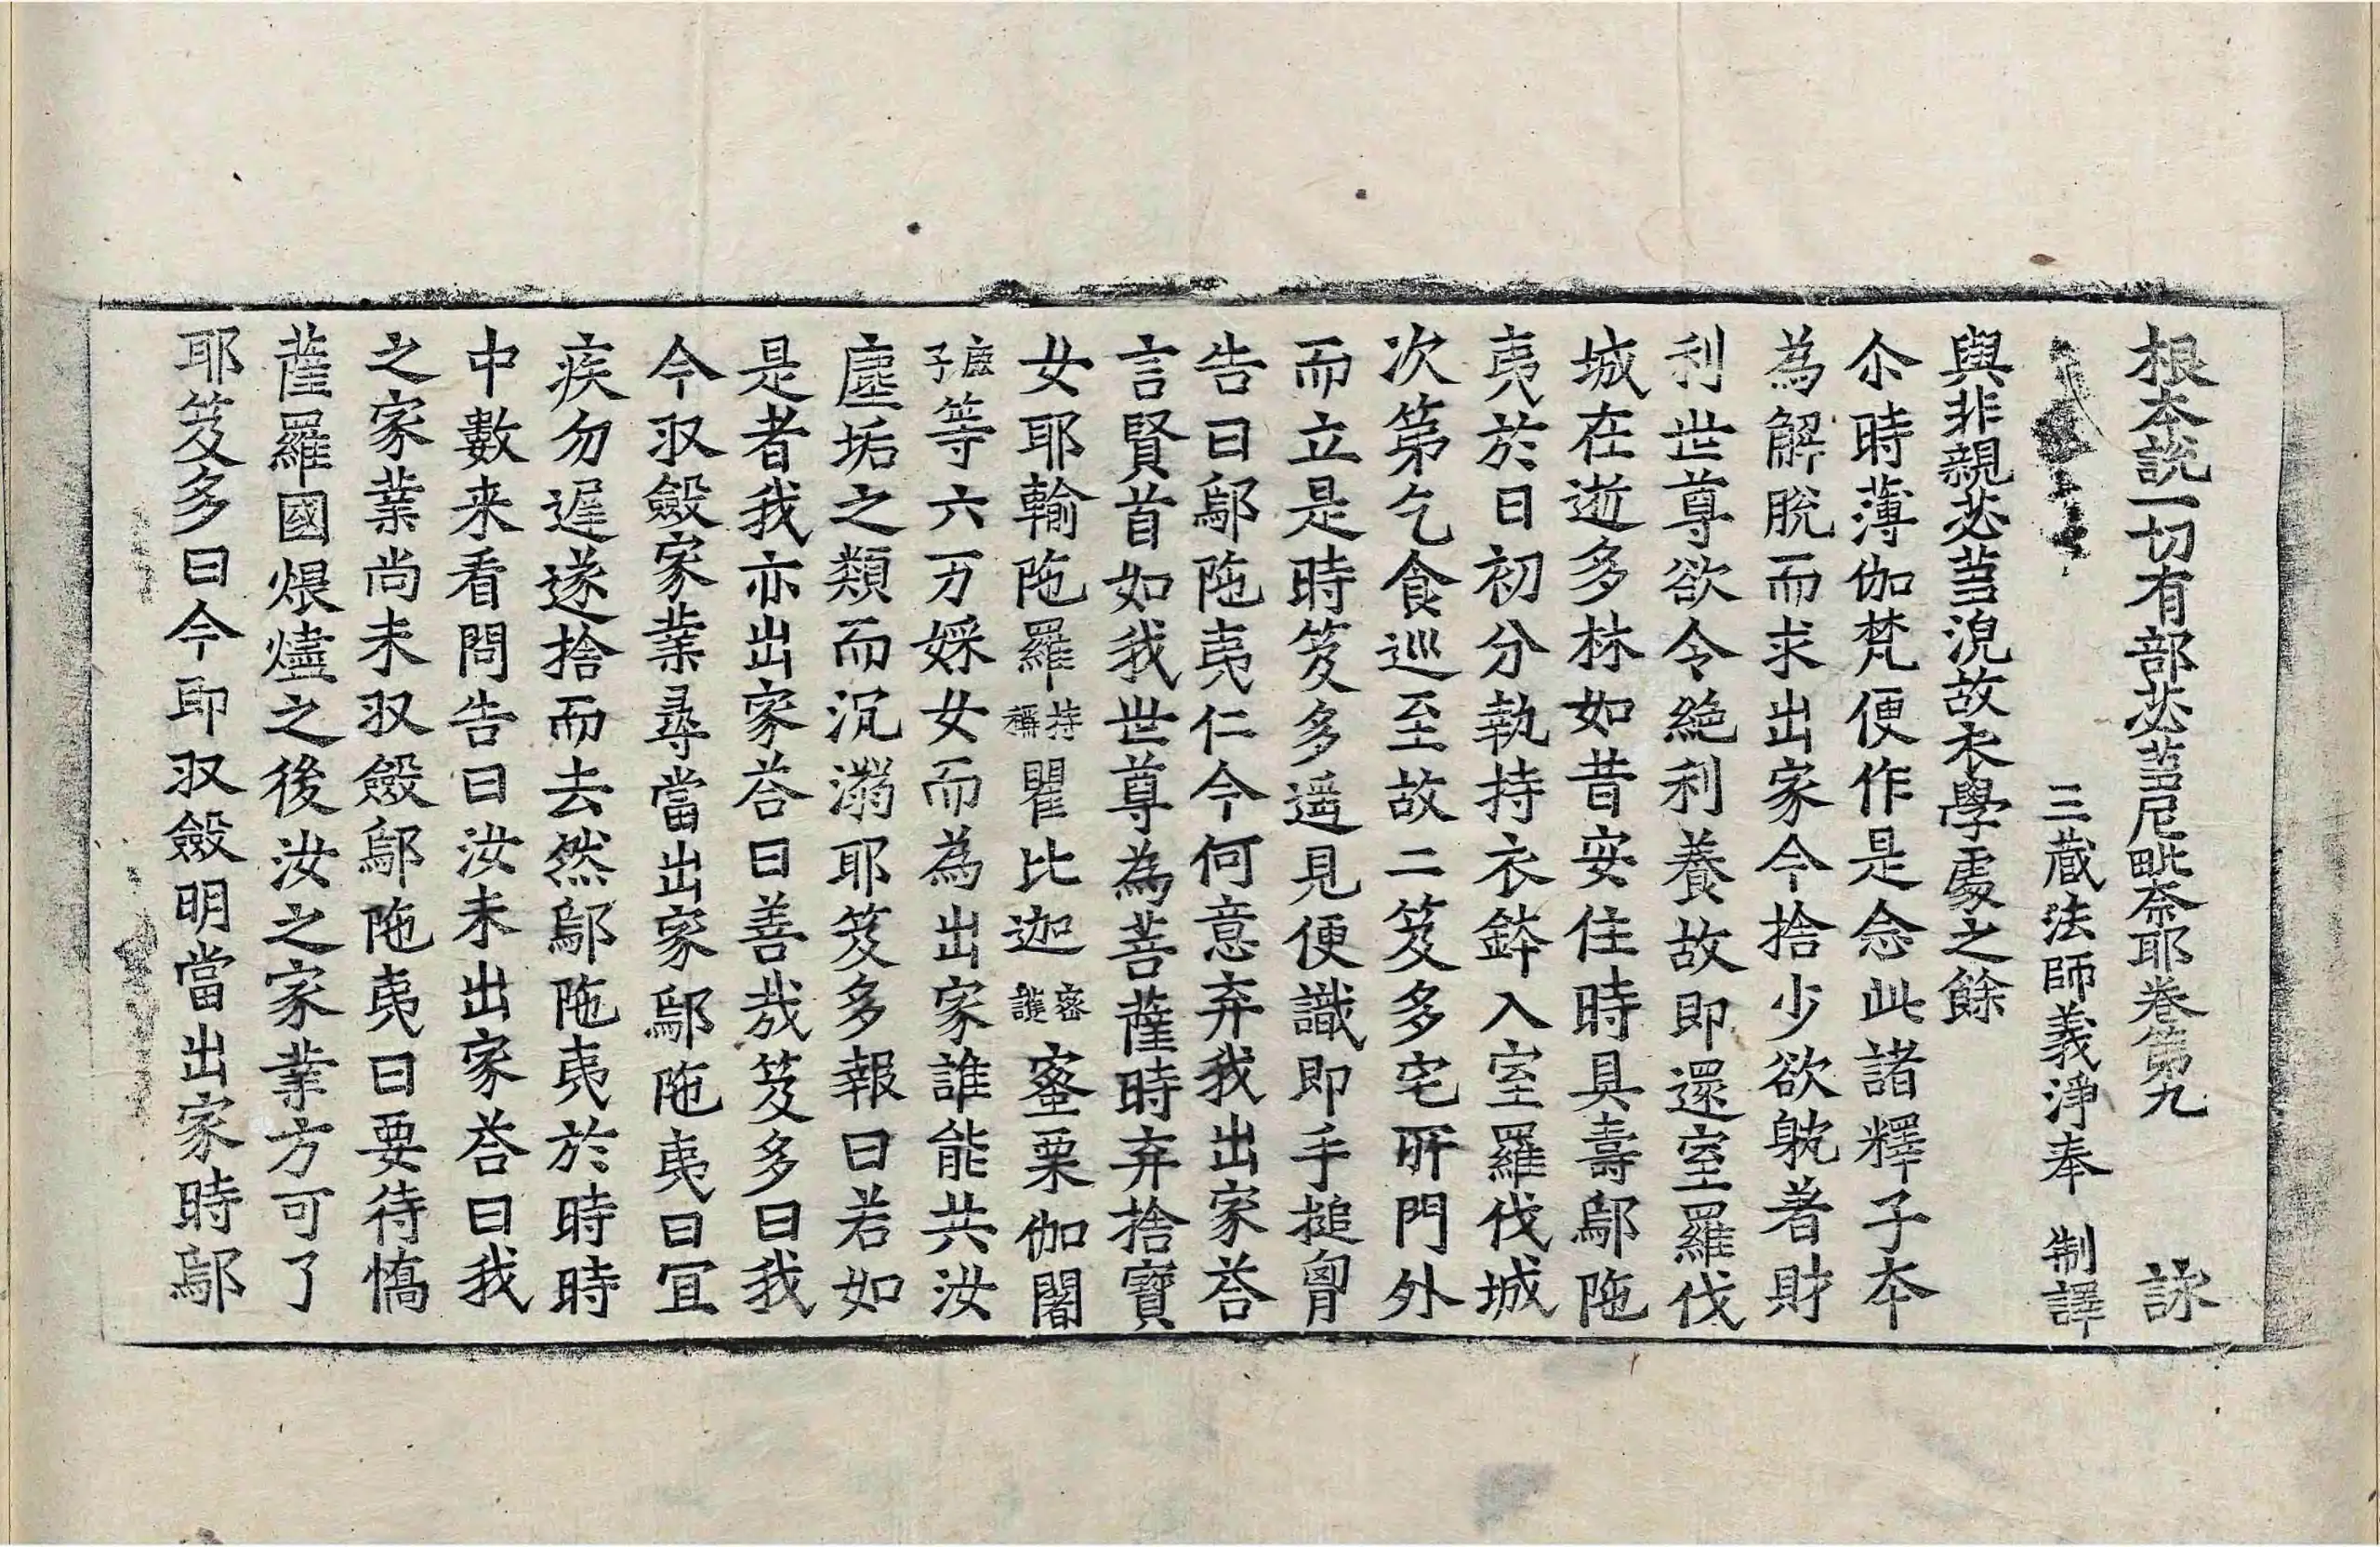 根本說一切有部苾蒭尼毗奈耶卷第九 詠
三藏法師義淨奉 制譯
與非親苾蒭浣故衣學處之餘
尒時薄伽梵便作是念此諸釋子本
為解脫而求出家今捨少欲躭著財
利世尊欲令絶利養故即還室羅伐
城在逝多林如昔安住時具壽鄔陁
夷於日初分執持衣鉢入室羅伐城
次第乞食巡至故二笈多宅所門外
而立是時笈多遥見便識即手搥胷
告曰鄔陁夷仁今何意弃我出家荅
言賢首如我世尊為菩薩時弃捨寶
女耶輸陁羅持稱瞿比迦密護蜜栗伽闍
鹿子等六万婇女而為出家誰能共汝
塵垢之類而沉溺耶笈多報曰若如
是者我亦出家荅曰善哉笈多曰我
今収斂家業尋當出家鄔陁夷曰冝
疾勿遲遂捨而去然鄔陁夷於時時
中數来看問告曰汝未出家荅曰我
之家業尚未収斂鄔陁夷曰要待憍
薩羅國煨燼之後汝之家業方可了
耶笈多曰今即収斂明當出家時鄔